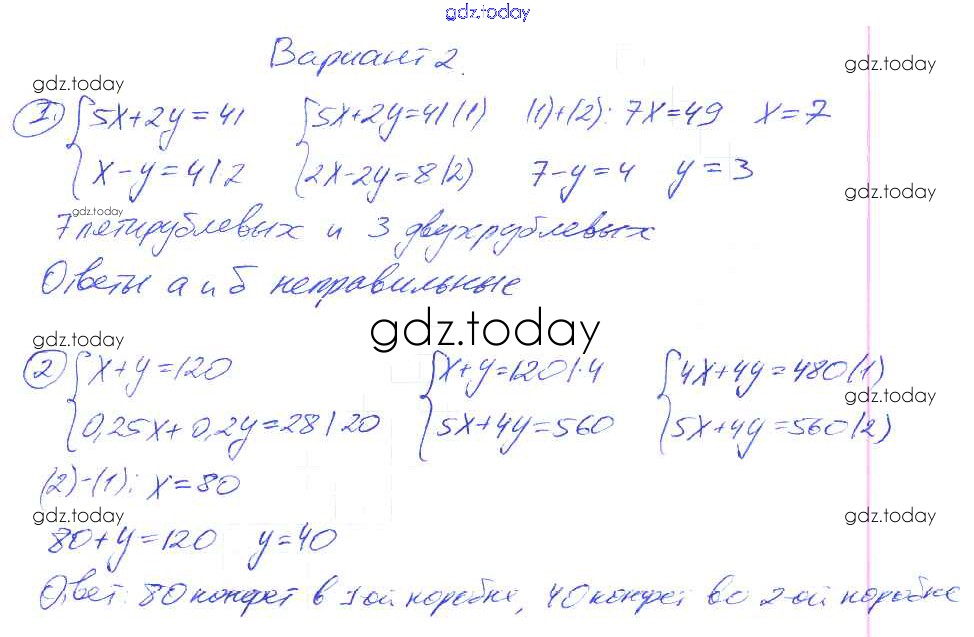 gdz.today
Вариант 2.
gdz.today gdz.today
① { 5x+2y=41 { 5x+2y=41 (1) (1)+(2): 7x=49 x=7
x-y=4 |·2 2x-2y=8 (2) 7-y=4 y=3
gdz.today gdz.today
7 пятирублевых и 3 двухрублевых
Ответы а и б неправильные
gdz.today
gdz.today gdz.today
② { x+y=120 { x+y=120 |·4 { 4x+4y=480 (1)
0,25x+0,2y=28 |·20 5x+4y=560 5x+4y=560 (2)
gdz.today gdz.today
(2)-(1): x=80
gdz.today gdz.today
80+y=120 y=40
Ответ: 80 конфет в 1-ой коробке, 40 конфет во 2-ой коробке